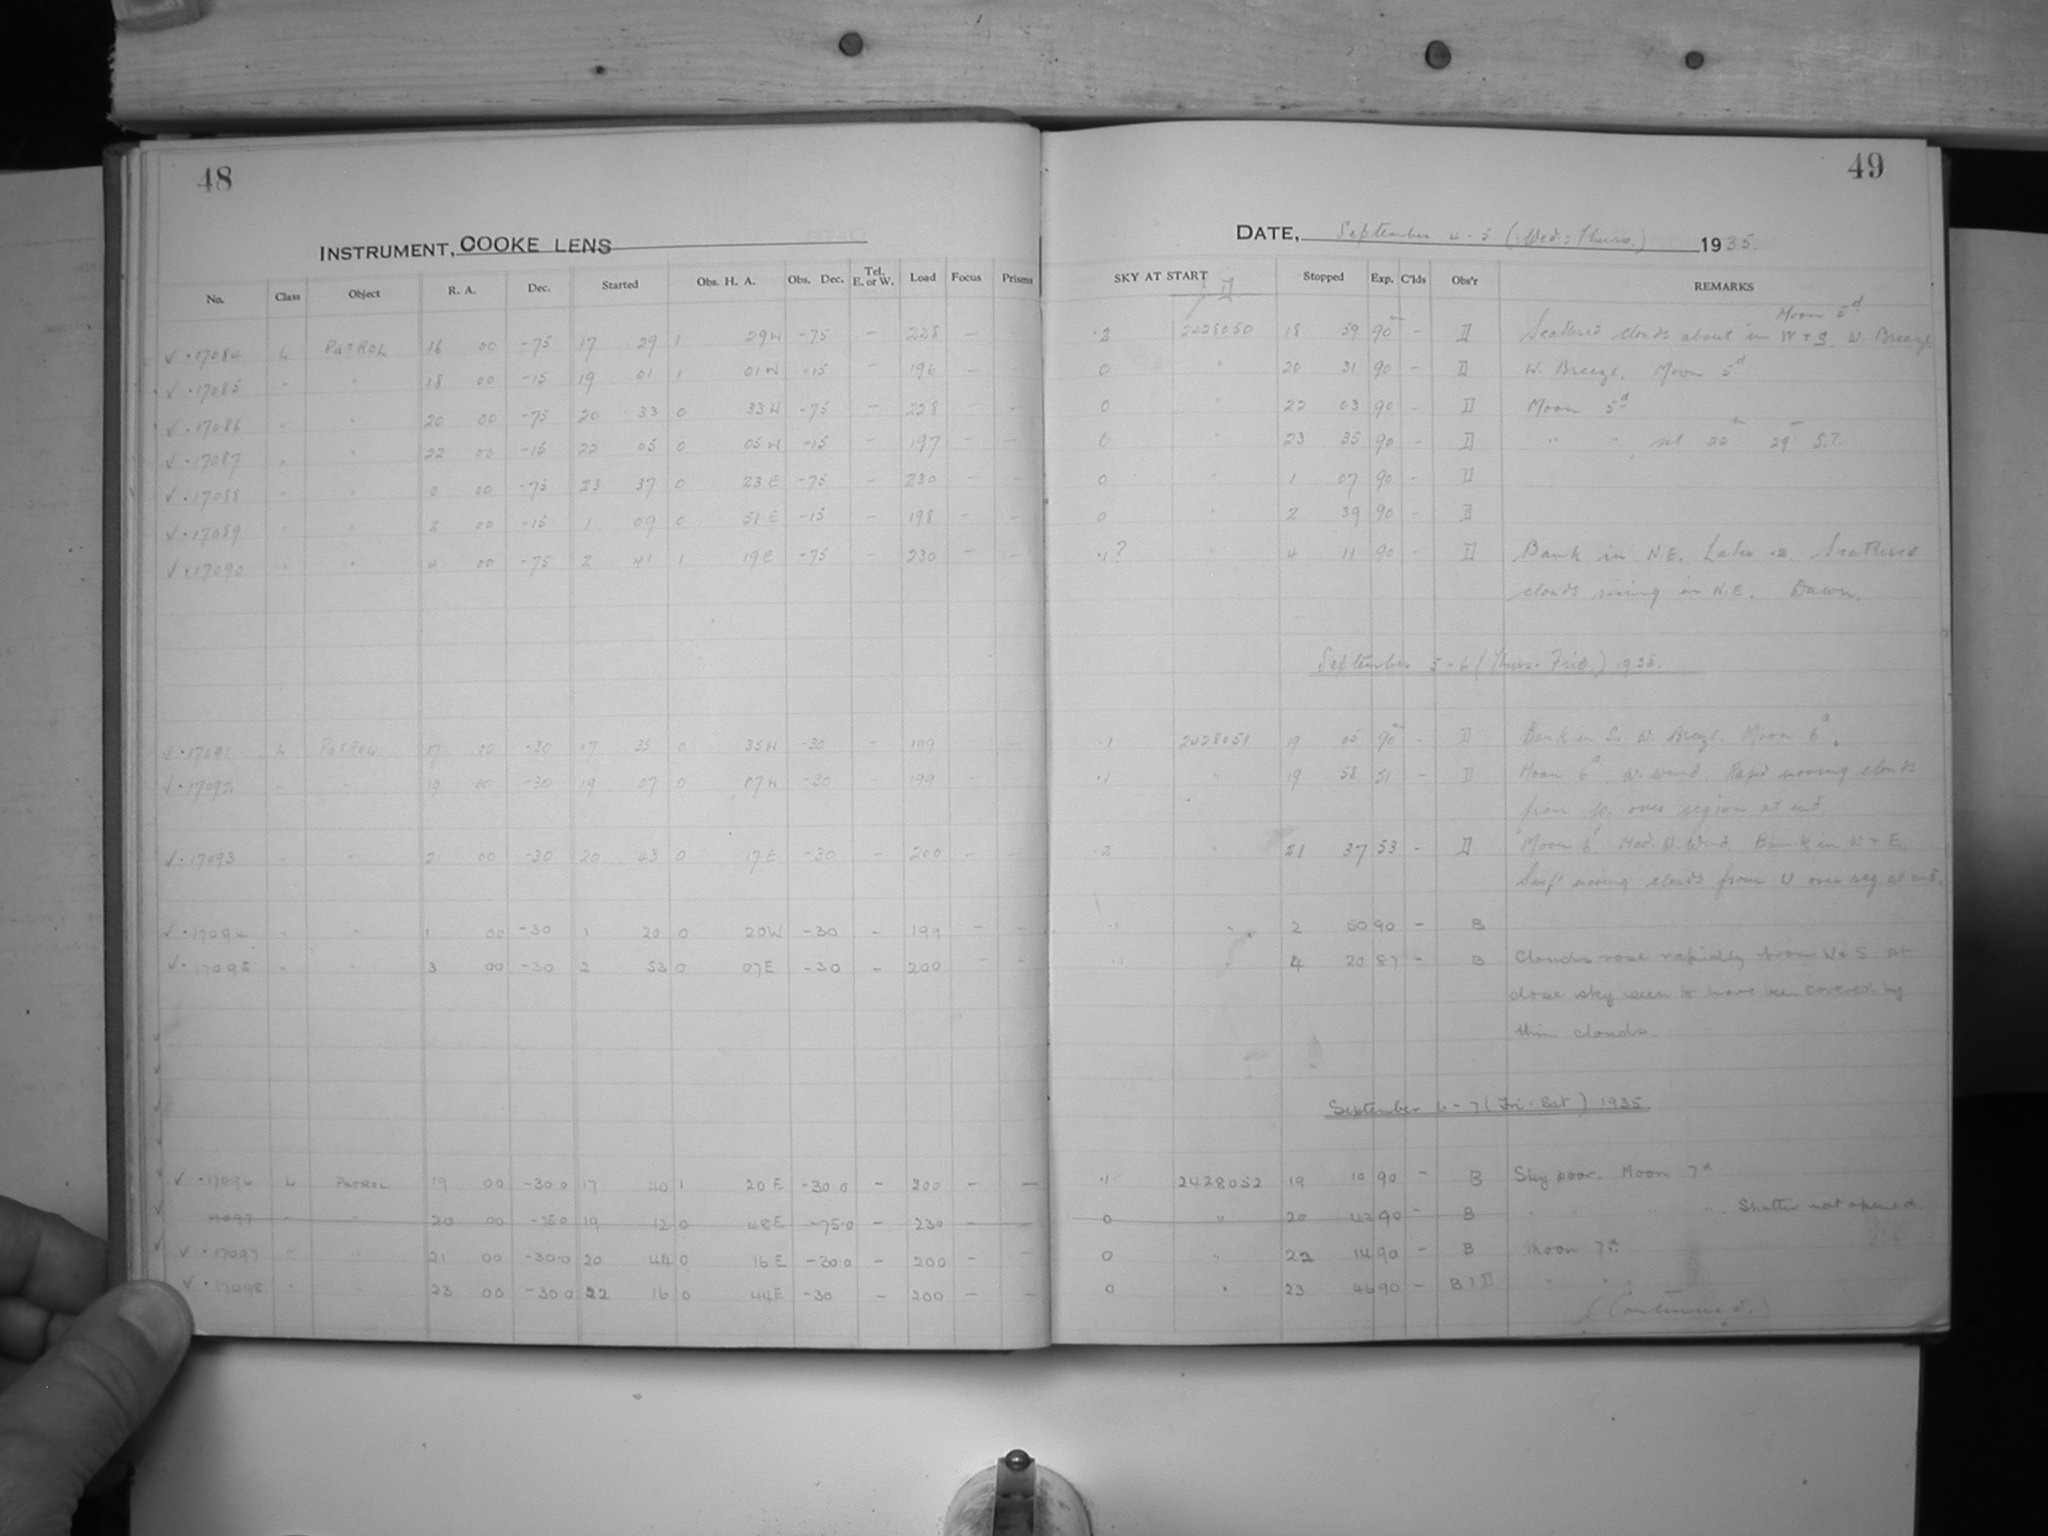 48
INSTRUMENT, COOKE LENS
No. Class Object R. A. Dec. Started Obs. H. A. Obs. Dec. Tel. E. or W. Load Focus Prisms
✓ · 17084 L PATROL 16 00 -75 17 29 1 29W -75 - 228 - -
✓ · 17085 " " 18 00 -15 19 01 1 01W -15 - 196 - -
✓ · 17086 " " 20 00 -75 20 33 0 33W -75 - 228 - -
✓ · 17087 " " 22 00 -15 22 05 0 05W -15 - 197 - -
✓ · 17088 " " 0 00 -75 23 37 0 23E -75 - 230 - -
✓ · 17089 " " 2 00 -15 1 09 0 51E -15 - 198 - -
✓ · 17090 " " 4 00 -75 2 41 1 19E -75 - 230 - -
✓ · 17091 L PATROL 17 00 -30 17 35 0 35W -30 - 199 - -
✓ · 17092 " " 19 00 -30 19 07 0 07W -30 - 199 - -
✓ · 17093 " " 21 00 -30 20 43 0 17E -30 - 200 - -
✓ · 17094 " " 1 00 -30 1 20 0 20W -30 - 199 - -
✓ · 17095 " " 3 00 -30 2 53 0 07E -30 - 200 - -
✓ · 17096 L PATROL 19 00 -30.0 17 40 1 20E -30.0 - 200 - -
17097 " " 20 00 -75.0 19 12 0 48E -75.0 - 230 - -
✓ · 17097 " " 21 00 -30.0 20 44 0 16E -30.0 - 200 - -
✓ · 17098 " " 23 00 -30.0 22 16 0 44E -30 - 200 - -
49
DATE, September 4-5 (Wed.-Thurs.) 1935.
SKY AT START Stopped Exp. C'lds Obs'r REMARKS
Moon 5d
.2 2428050 18 59 90m - D Scattered clouds about in W + S. W. Breeze
0 " 20 31 90 - D W. Breeze. Moon 5d
0 " 22 03 90 - D Moon 5d
0 " 23 35 90 - D " " , set 22h 29m S.T.
0 " 1 07 90 - D
0 " 2 39 90 - D
.1? " 4 11 90 - D Bank in N.E. Later .2. Scattered
clouds rising in N.E. Dawn.
September 5-6 (Thurs.-Frid.) 1935.
.1 2428051 19 05 90m - D Bank in S. W. Breeze. Moon 6d.
.1 " 19 58 51 - D Moon 6d W. wind. Rapid moving clouds
from W. over region at end.
.2 " 21 37 53 - D Moon 6d. Mod. W. Wind Bank in W + E
Swift moving clouds from W over reg. at end.
.1 " 2 50 90 - B
.1 " 4 20 87 - B Clouds rose rapidly from N & S At
close sky seen to have been covered by
thin clouds.
September 6-7 (Fri-Sat) 1935
.1 2428052 19 10 90 - B Sky poor. Moon 7d
0 " 20 42 90 - B " " " " Shutter not opened
0 " 22 14 90 - B Moon 7d
0 " 23 46 90 - B / D " "
(Continued.)